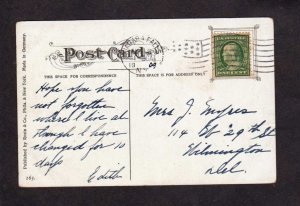 Post Card
THIS SPACE FOR CORRESPONDENCE
THIS SPACE IS FOR ADDRESS ONLY
Hope you have
not forgotten
where I live at
though I have
changed for 10
days
Edith
Mrs J. Myres
114 W 29th St
Wilmington
Del.
167.
Made in Germany.